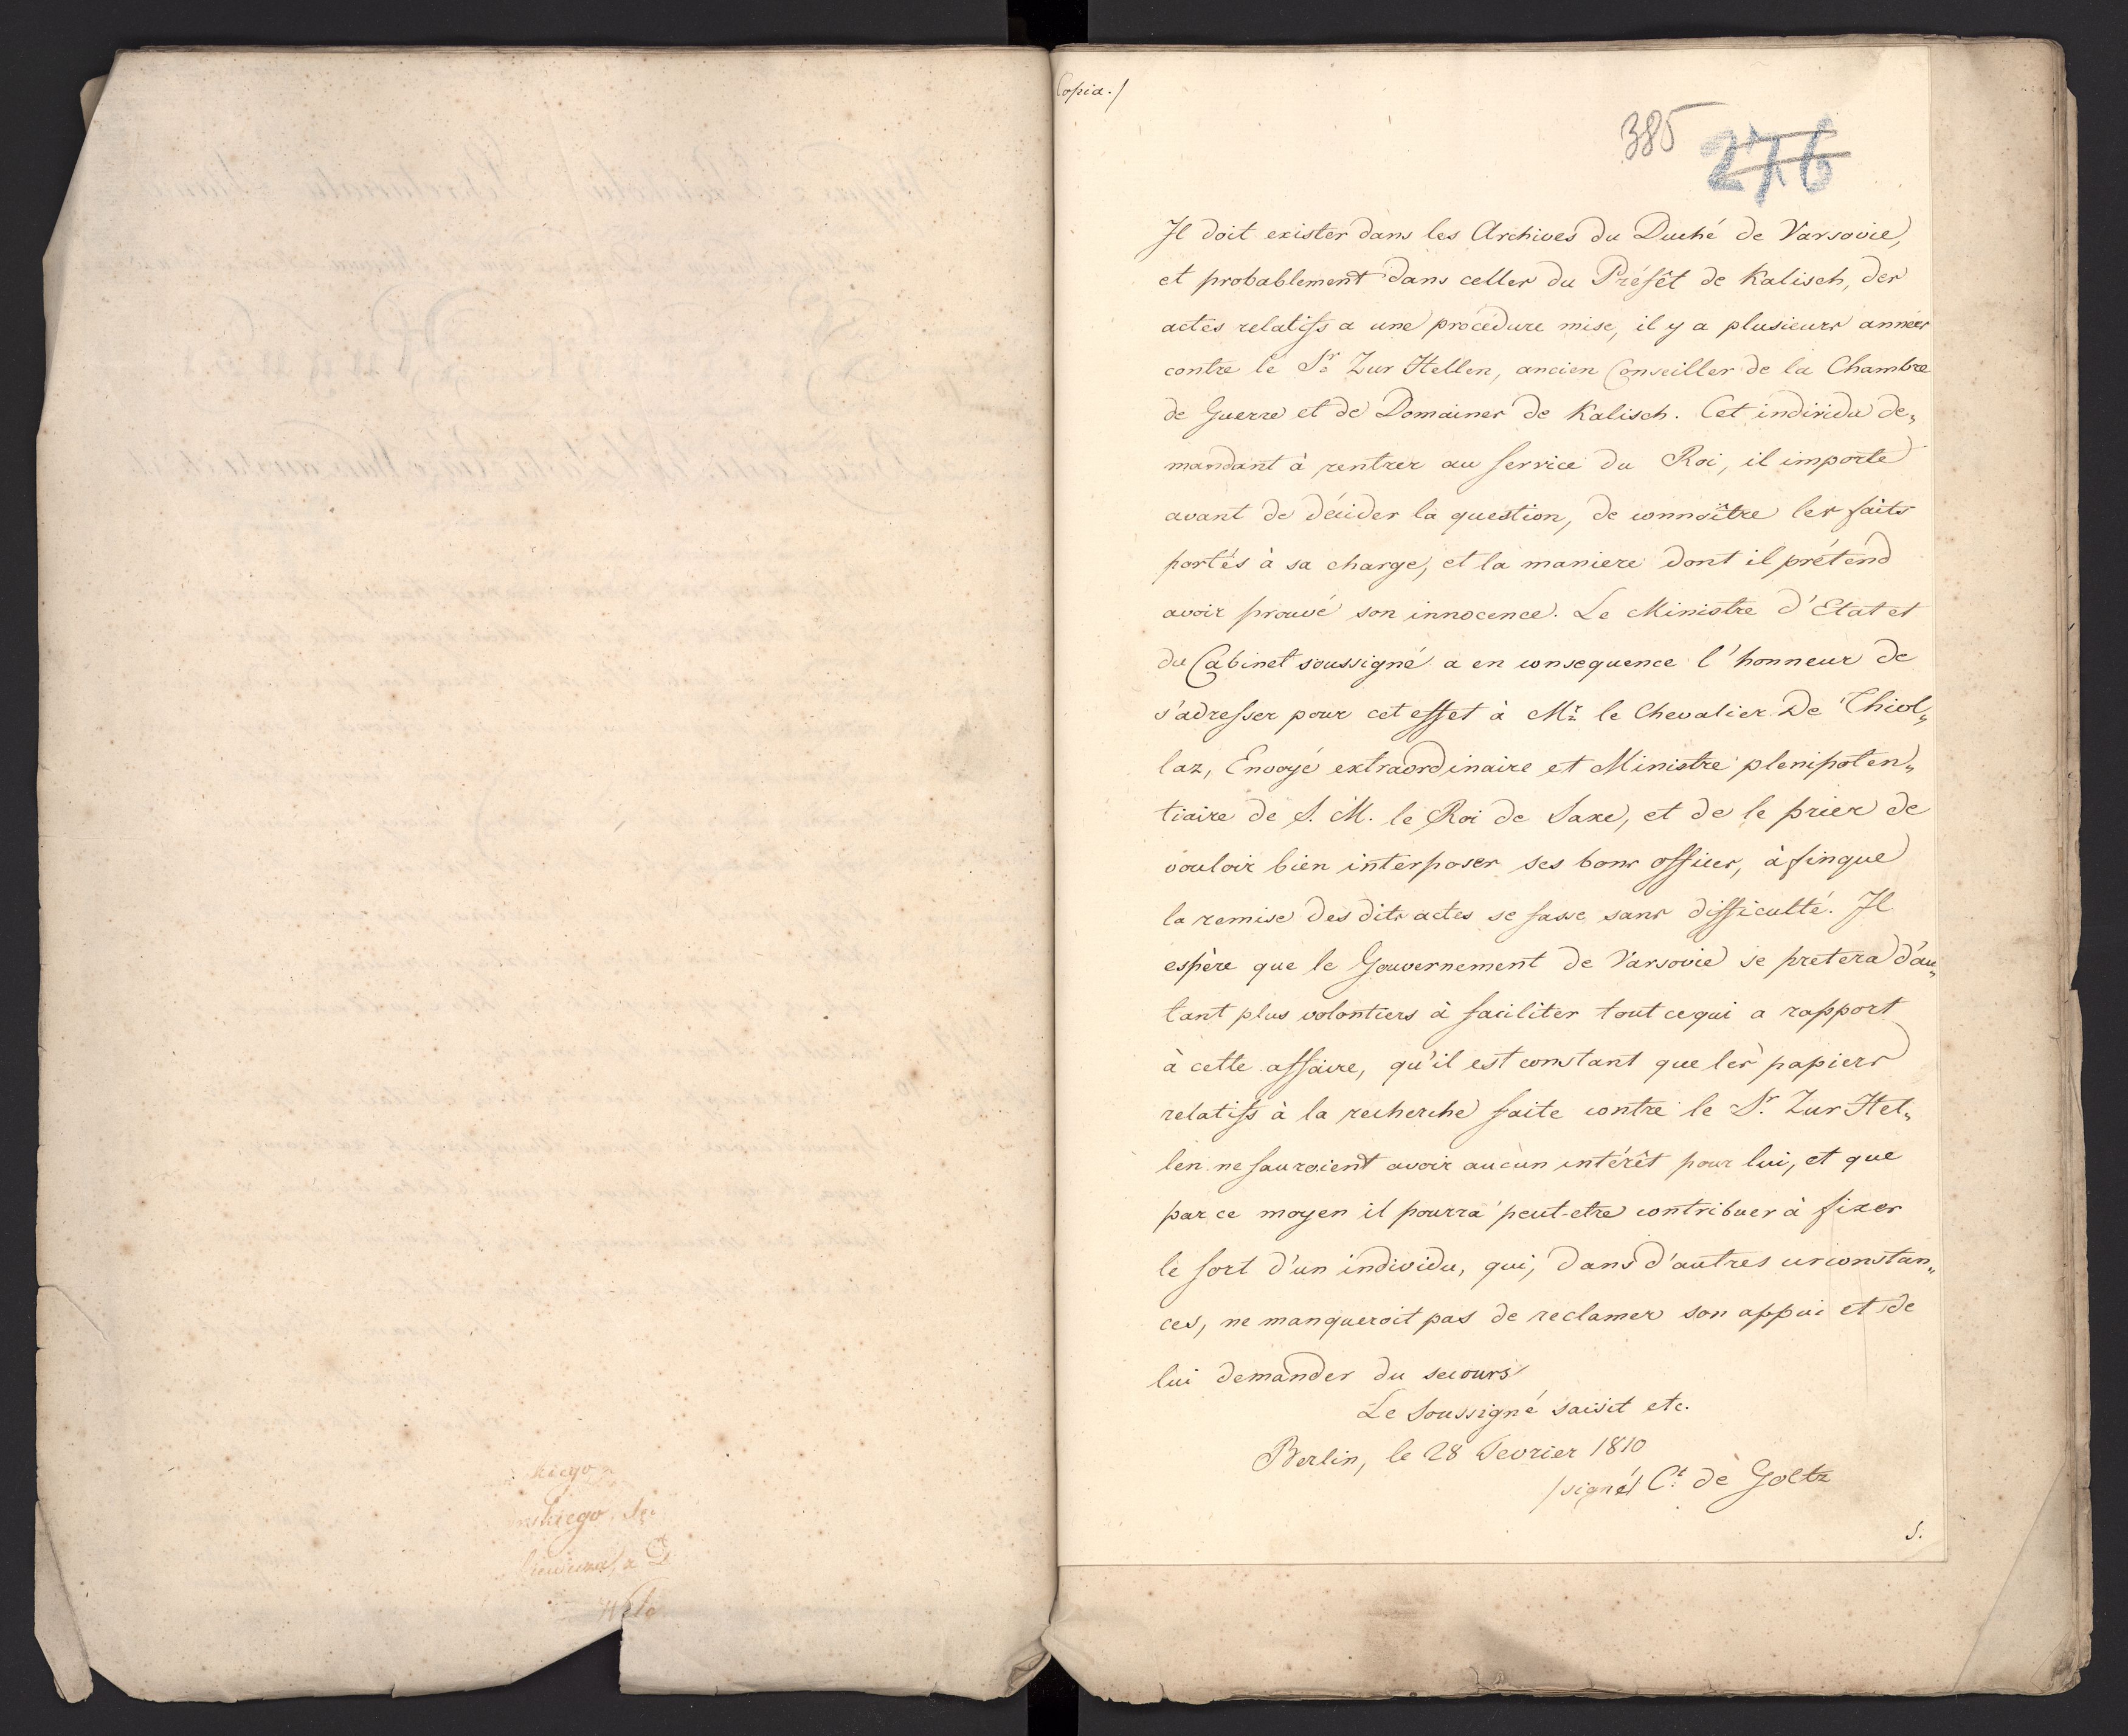 Copia./
385 276
Il doit exister dans les Archives du Duché de Varsovie,
et probablement dans celles du Préfêt de Kalisch, des
actes relatifs a une procédure mise, il y a plusieurs années
contre le Sr. Zur Hellen, ancien Conseiller de la Chambre
de Guerre et de Domaines de Kalisch. Cet individu de„
mandant à rentrer au service du Roi, il importe
avant de décider la question, de connoître les faits
portés à sa charge, et la maniere dont il prétend
avoir prouvé son innocence. Le Ministre d'Etat et
du Cabinet soussigné a en consequence l'honneur de
s'adresser pour cet effet à Mr. le Chevalier De Thiol„
laz, Envoyé extraordinaire et Ministre plenipoten„
tiaire de S. M. le Roi de Saxe, et de le prier de
vouloir bien interposer ses bons offices, àfinque
la remise des dits actes se fasse sans difficulté. Il
espère que le Gouvernement de Varsovie se pretera d'au„
tant plus volontiers à faciliter tout cequi a rapport
à cette affaire, qu'il est constant que les papiers
relatifs à la recherche faite contre le Sr. Zur Hel„
len ne sauroient avoir aucun intérêt pour lui, et que
par ce moyen il pourra peut-etre contribuer à fixer
le sort d'un individu, qui, dans d'autres circonstan„
ces, ne manqueroit pas de reclamer son appui et de
lui demander du secours
Le Soussigné saisit etc.
Berlin, le 28 Fevrier 1810
/signé/ Ct. de Goltz
S.